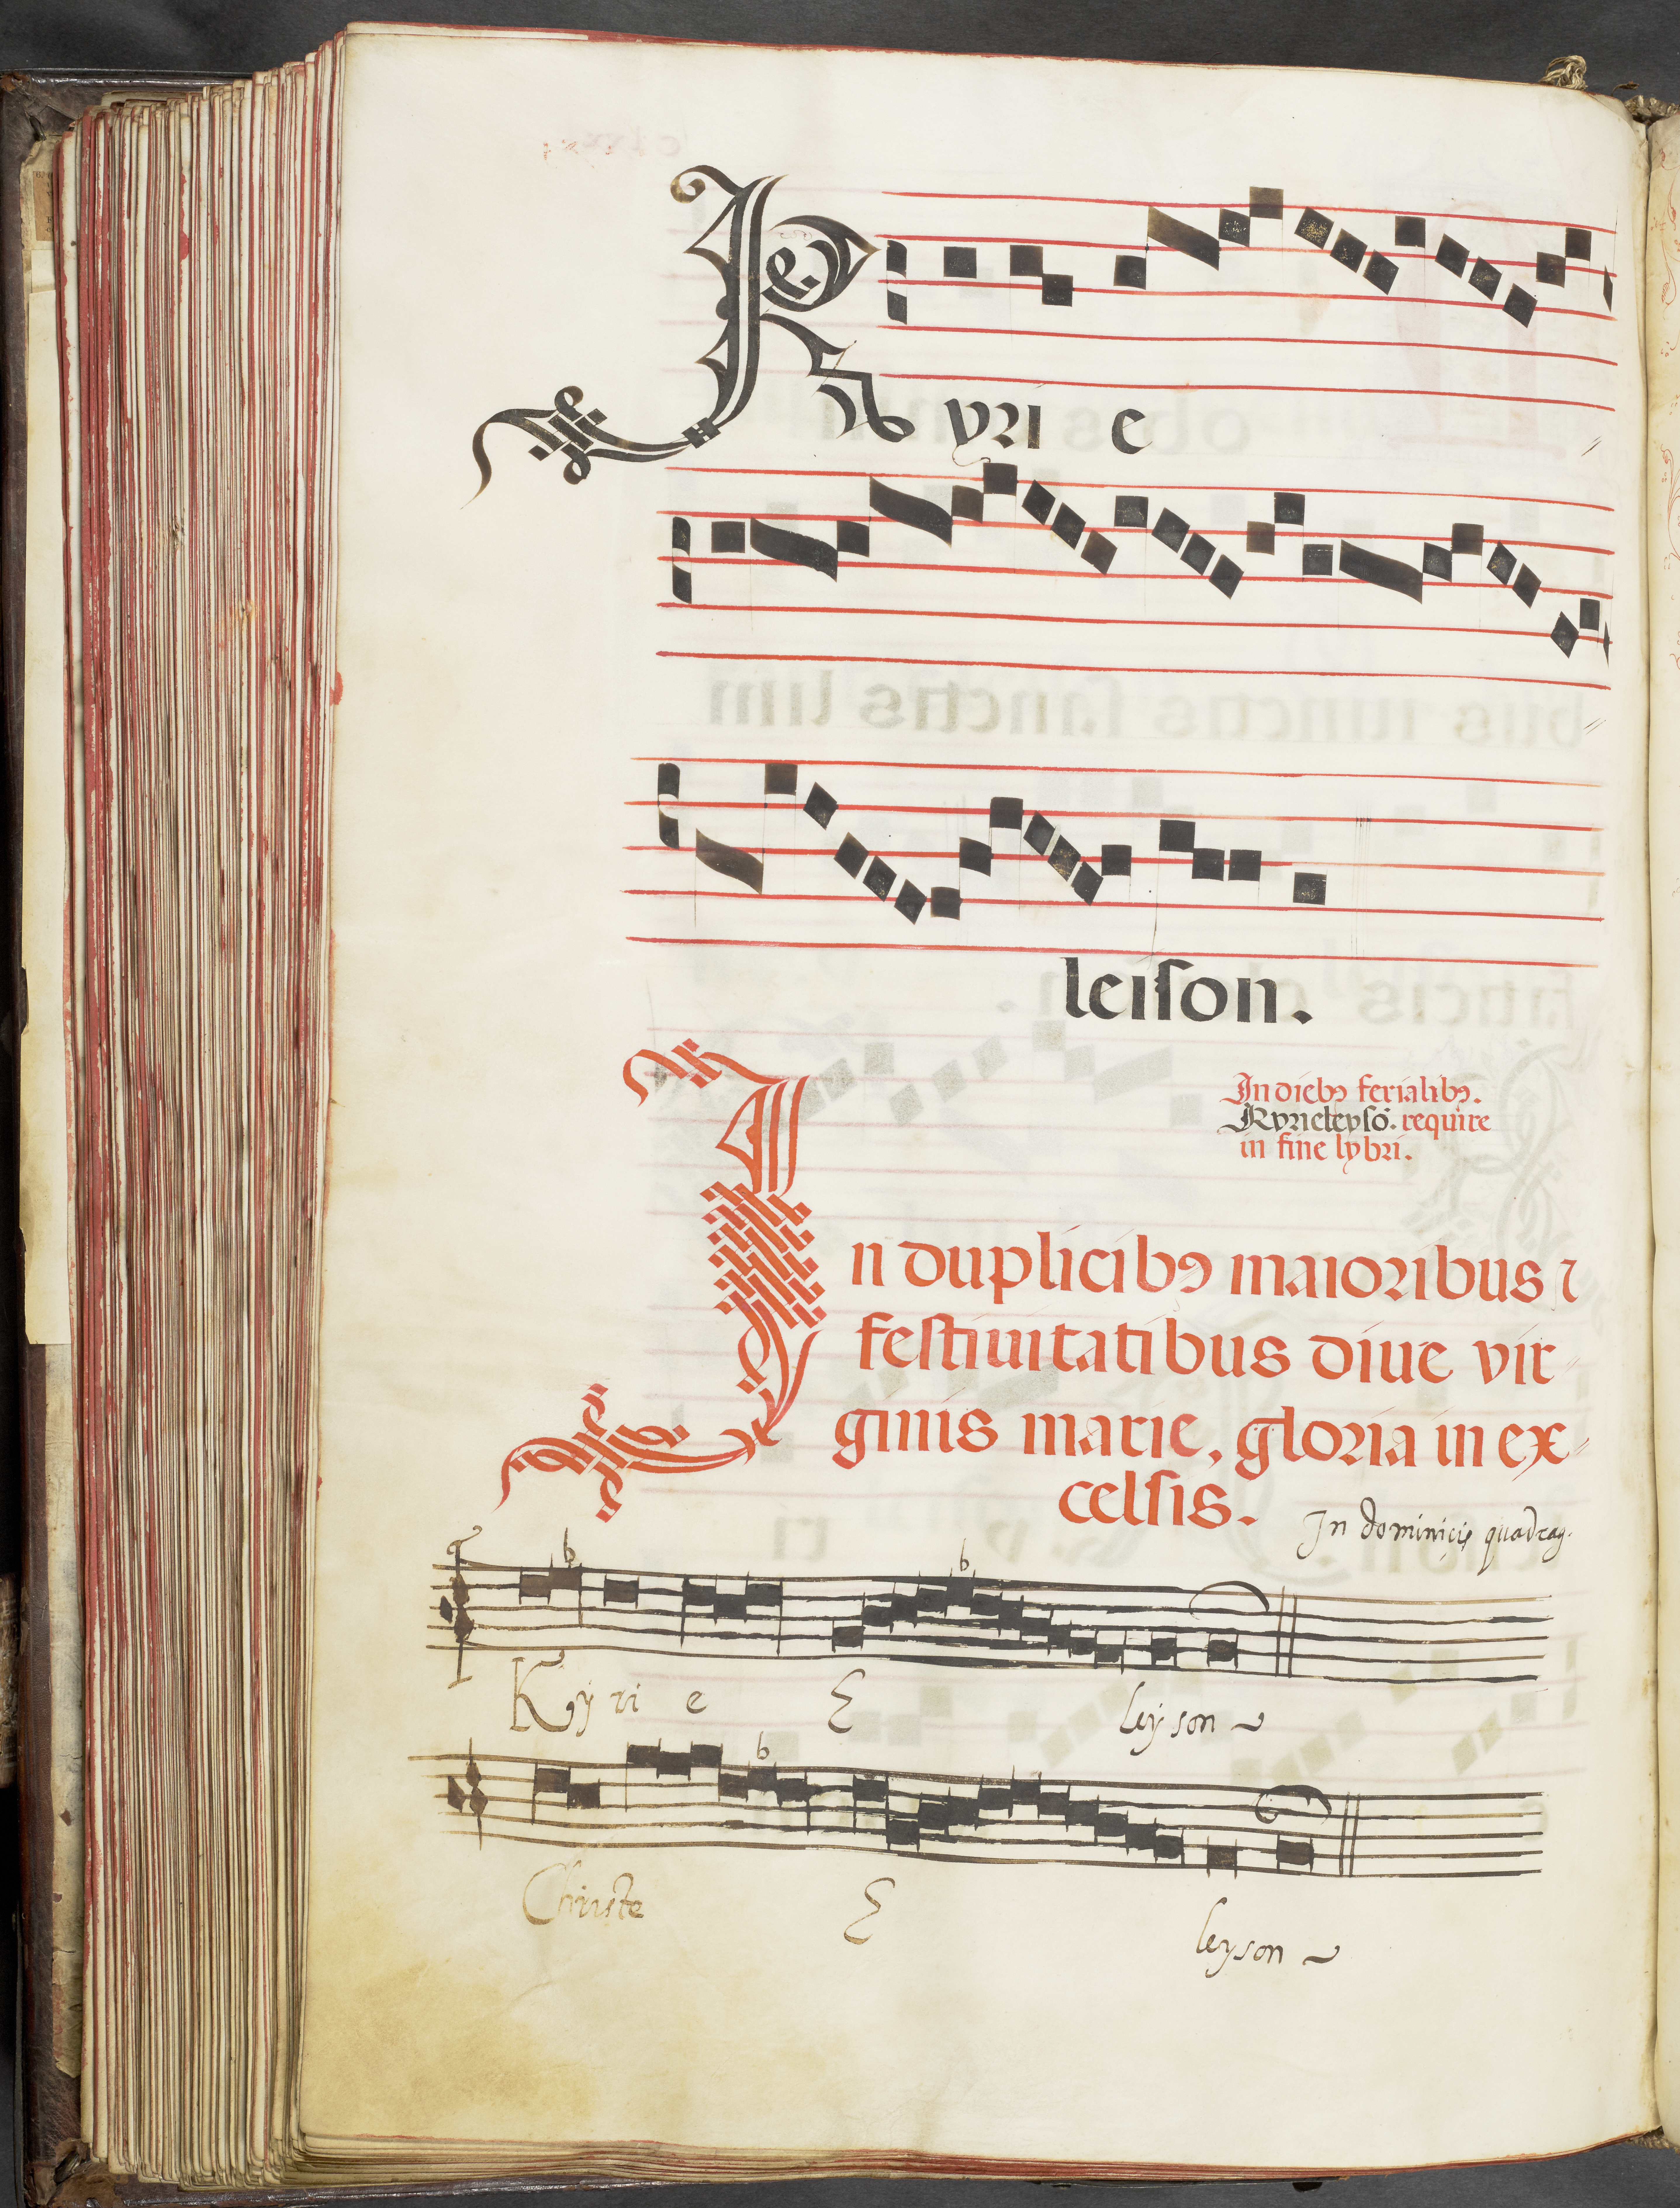 Kyri e
leiſon.
In diebꝰ ferialibꝰ.
Kyrieleyſō. require
in fine lybri.
In duplicibꝰ maioribus ⁊
feſtiuitatibus diue vir
ginis marie, gloria in ex
celſis.
In dominicis quadrag.
Kyri e E leyson
Christe E leyson